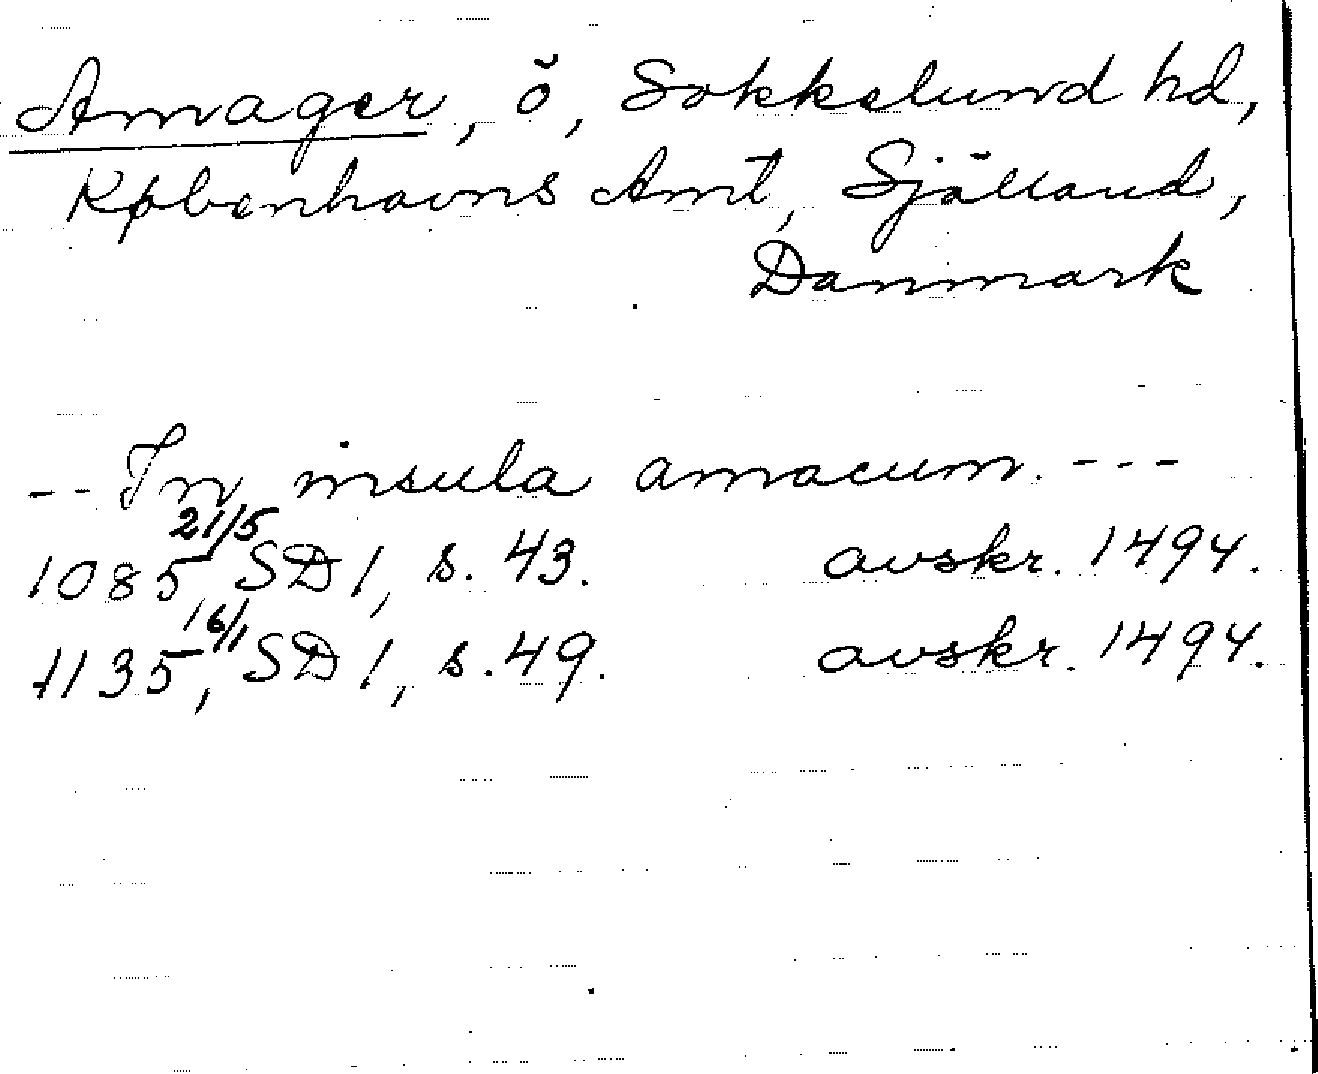 Amager, ö, Sokkelund hd,
Københavns Amt, Själland,
Danmark
-- In insula amacum. ---
1085 21/5, SD 1, s. 43. avskr. 1494.
1135 16/1, SD 1, s. 49. avskr. 1494.